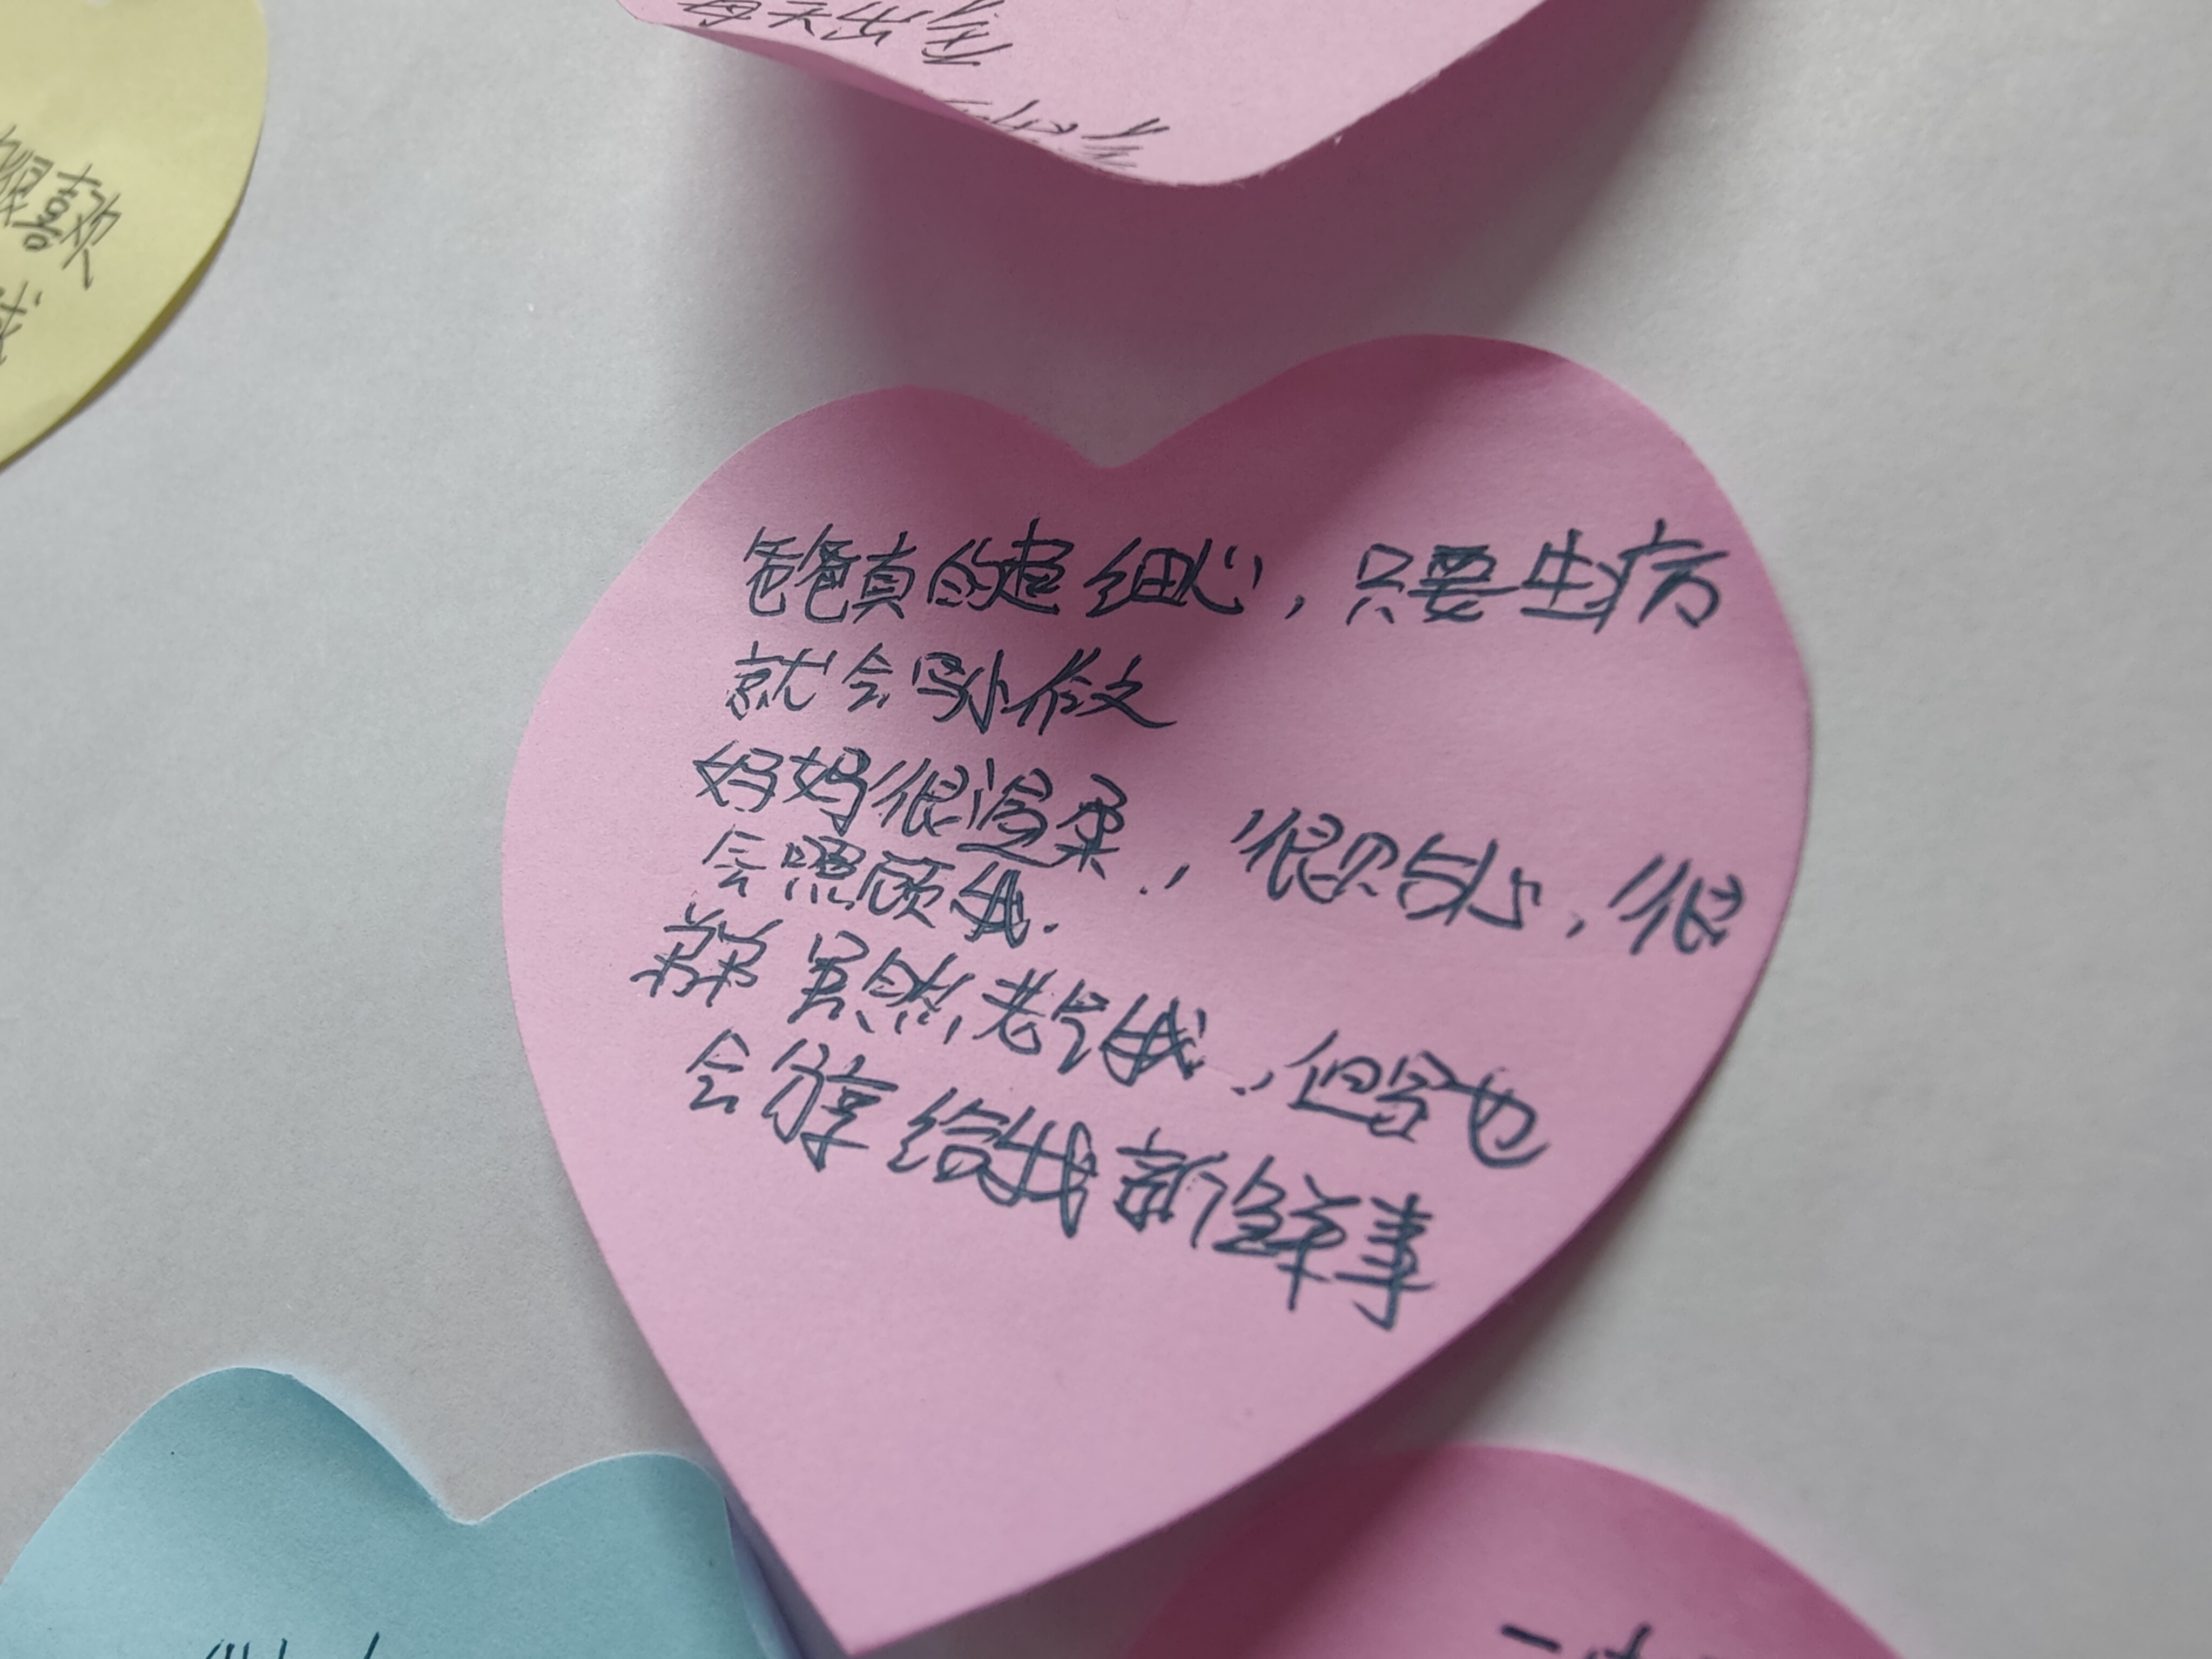 每天出
很喜欢
爸爸真的超细心，只要生病
就会写小作文
妈妈很温柔，很贴心，很
会照顾我.
弟弟虽然老气我，但也
会分享给我新鲜事